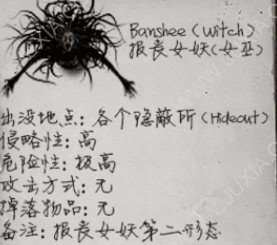 Banshee(Witch)
报丧女妖(女巫)
出没地点：各个隐蔽所(Hideout)
侵略性：高
危险性：极高
攻击方式：无
掉落物品：无
备注：报丧女妖第二形态